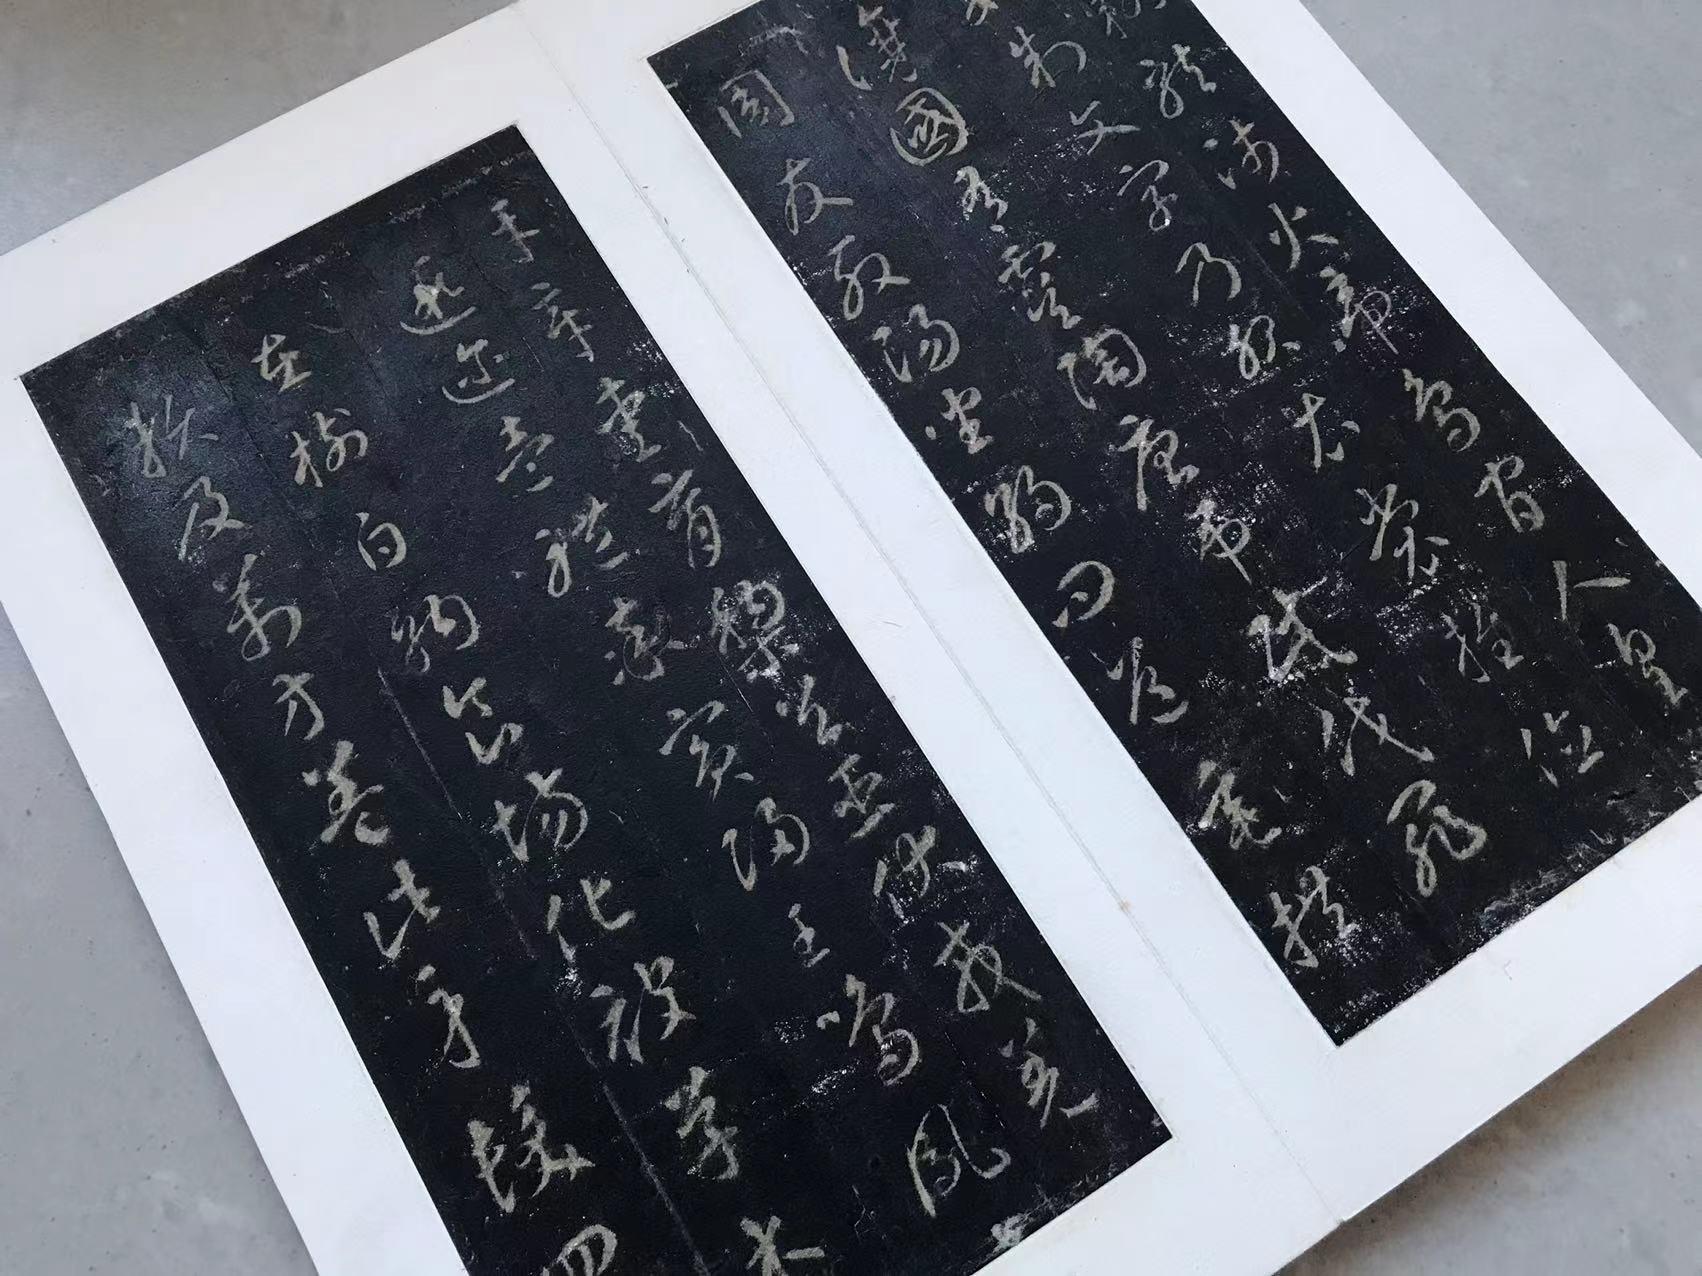 龍師火帝鳥官人皇
制文字乃服衣裳推位
讓國有虞陶唐弔民伐罪
周發殷湯坐朝問道垂拱
平章愛育黎首臣伏戎羌
遐邇壹體率賓歸王鳴鳳
在樹白駒食場化被草木
賴及萬方蓋此身髮四